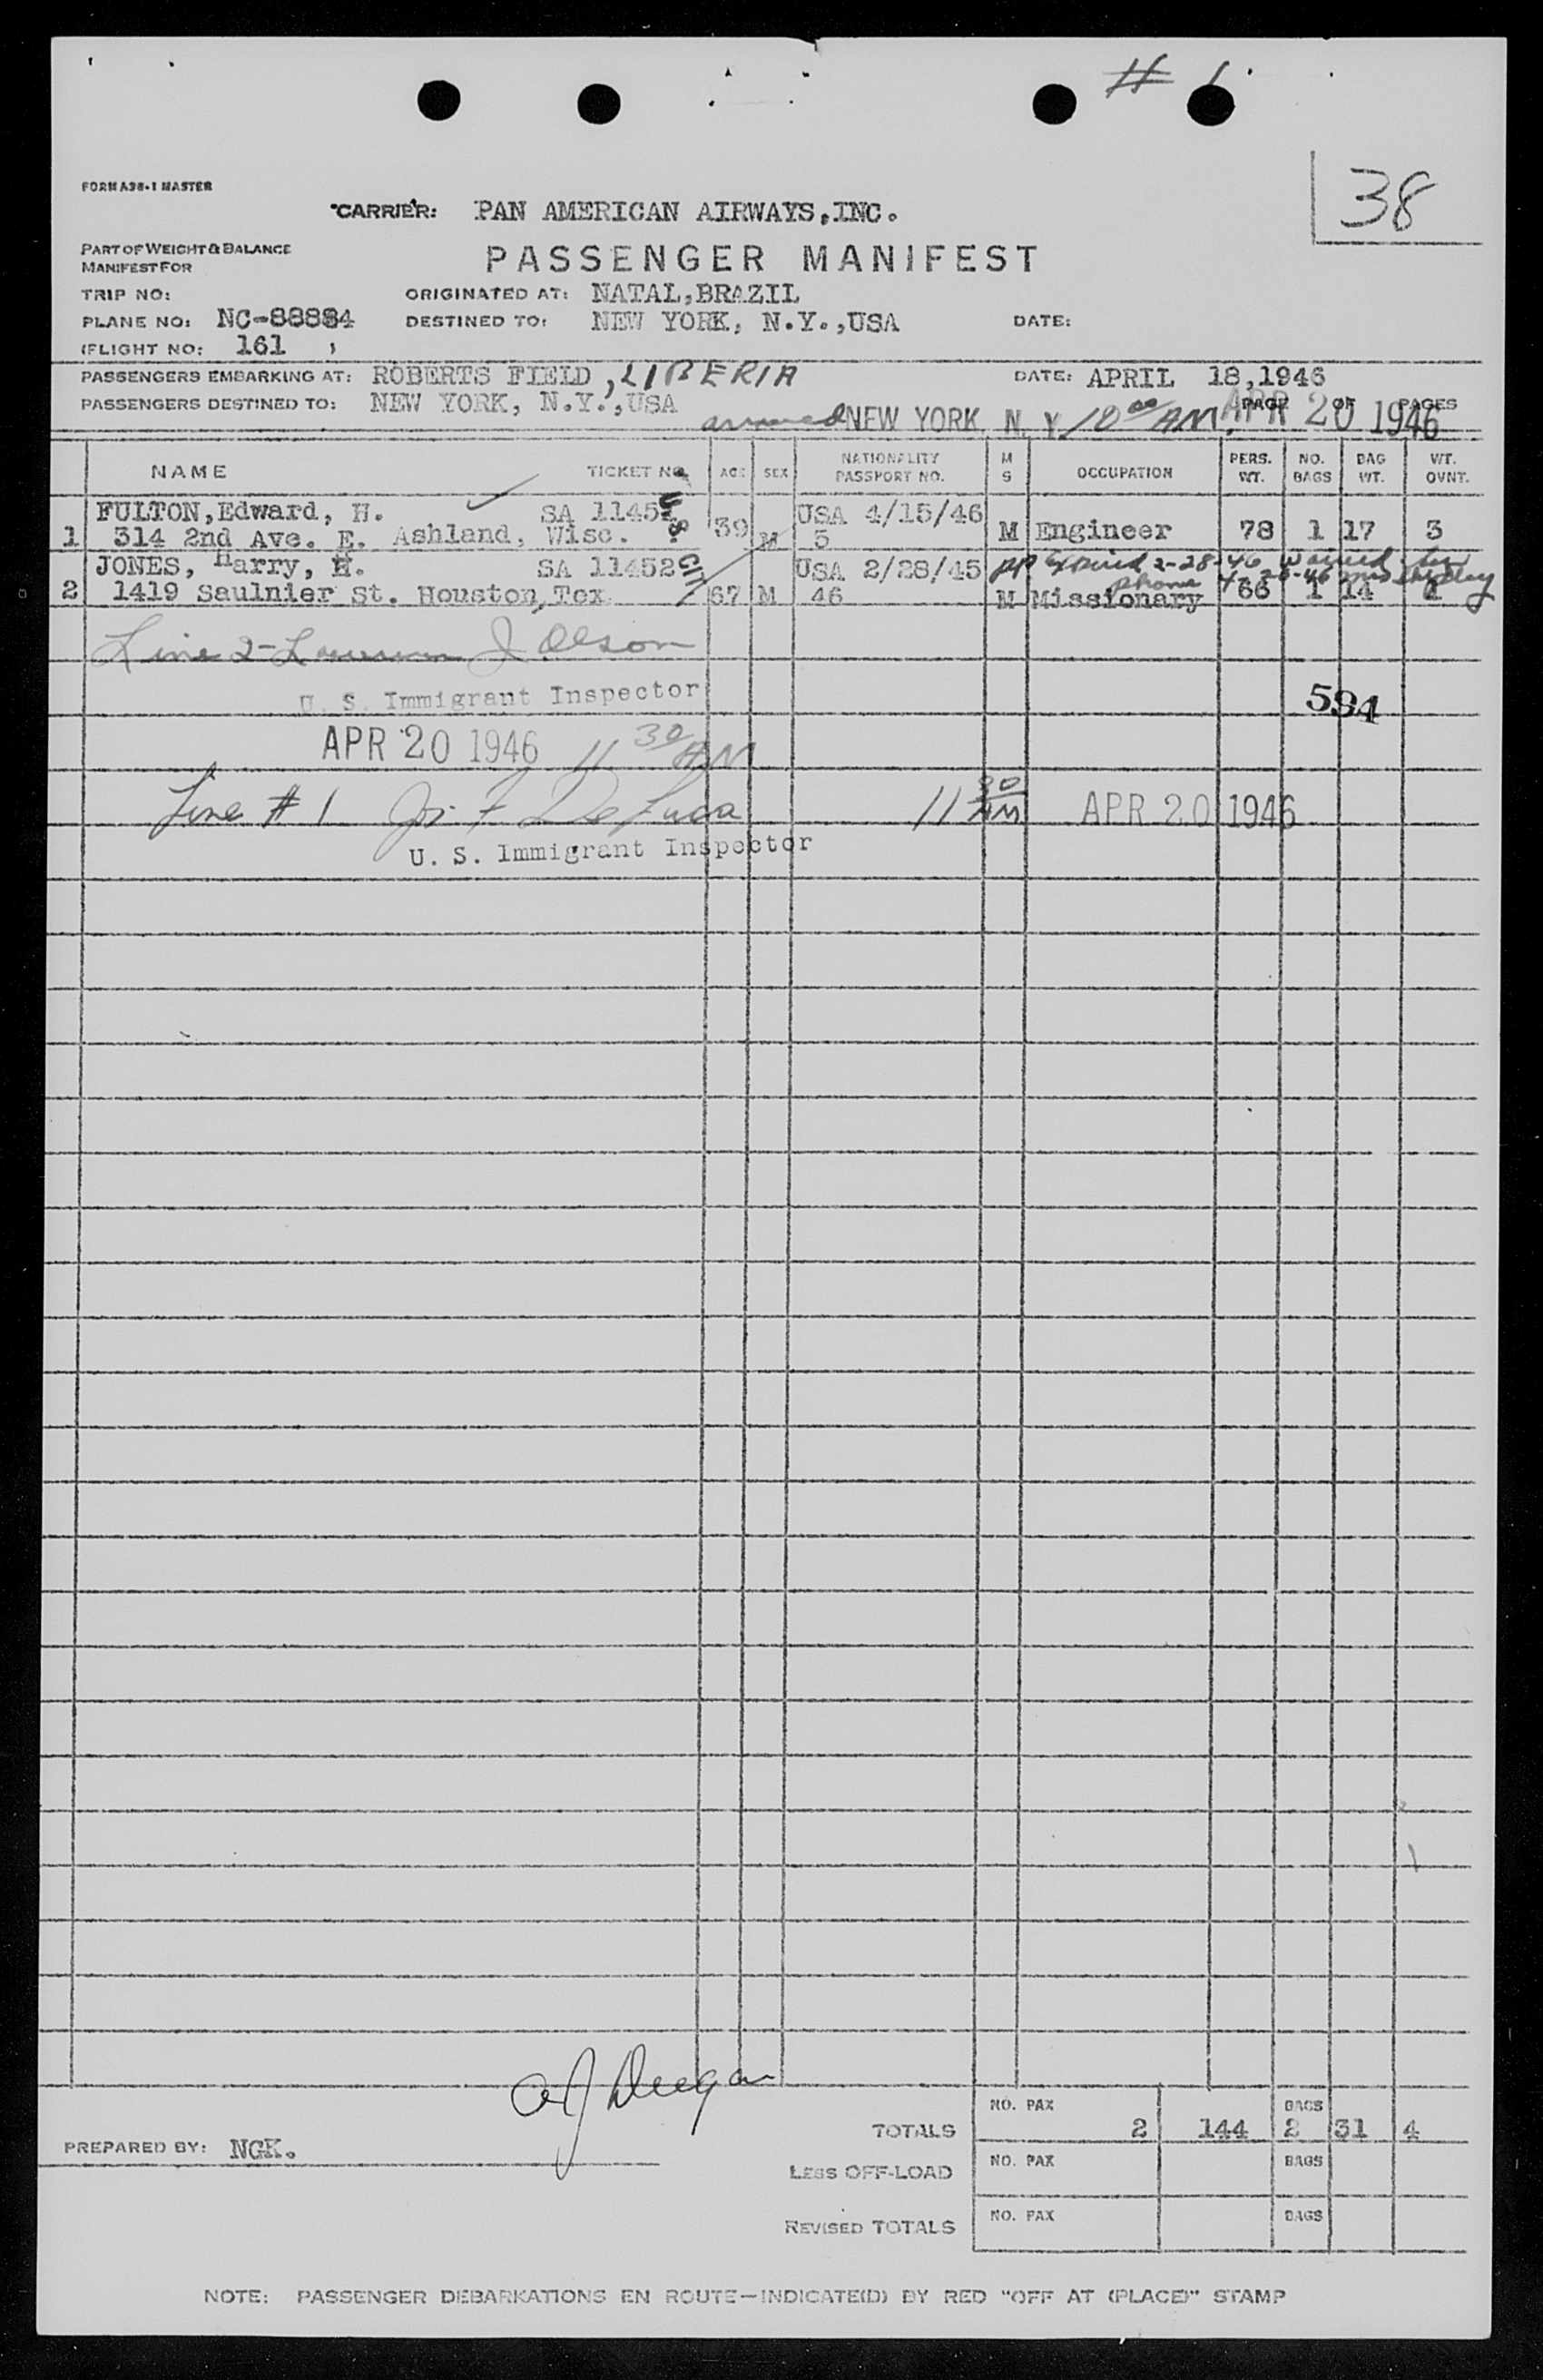 # 1
38
FORM A38-1 MASTER
CARRIER: PAN AMERICAN AIRWAYS,INC.
PART OF WEIGHT & BALANCE
MANIFEST FOR
PASSENGER MANIFEST
TRIP NO: ORIGINATED AT: NATAL,BRAZIL
PLANE NO: NC-88884 DESTINED TO: NEW YORK, N.Y.,USA DATE:
FLIGHT NO: 161
PASSENGERS EMBARKING AT: ROBERTS FIELD, LIBERIA DATE: APRIL 18,1946
PASSENGERS DESTINED TO: NEW YORK, N.Y.,USA PAGE OF PAGES
arrived NEW YORK, N. Y. 10 00 AM APR 20 1946
NAME TICKET NO. AGE SEX NATIONALITY PASSPORT NO. M S OCCUPATION PERS. WT. NO. BAGS BAG WT. WT. OVNT.
FULTON,Edward, H. SA 11451 USA 4/15/46
1 314 2nd Ave. E. Ashland, Wisc. 39 M 3 M Engineer 78 1 17 3
U.S. CIT
JONES, Harry, H. SA 11452 USA 2/28/45 PP Expired 2-28-46 Waived by
phone
2 1419 Saulnier St. Houston,Tex 67 M 46 M Missionary 66 1 14 1
Line 2- J Olson
U. S. Immigrant Inspector
594
APR 20 1946 11 30 AM
Line # 1 F De Luca 11 30 AM APR 20 1946
U. S. Immigrant Inspector
TOTALS NO. PAX 2 144 BAGS 2 31 4
PREPARED BY: NGK.
LESS OFF-LOAD NO. PAX BAGS
REVISED TOTALS NO. PAX BAGS
NOTE: PASSENGER DEBARKATIONS EN ROUTE—INDICATE(D) BY RED "OFF AT (PLACE)" STAMP